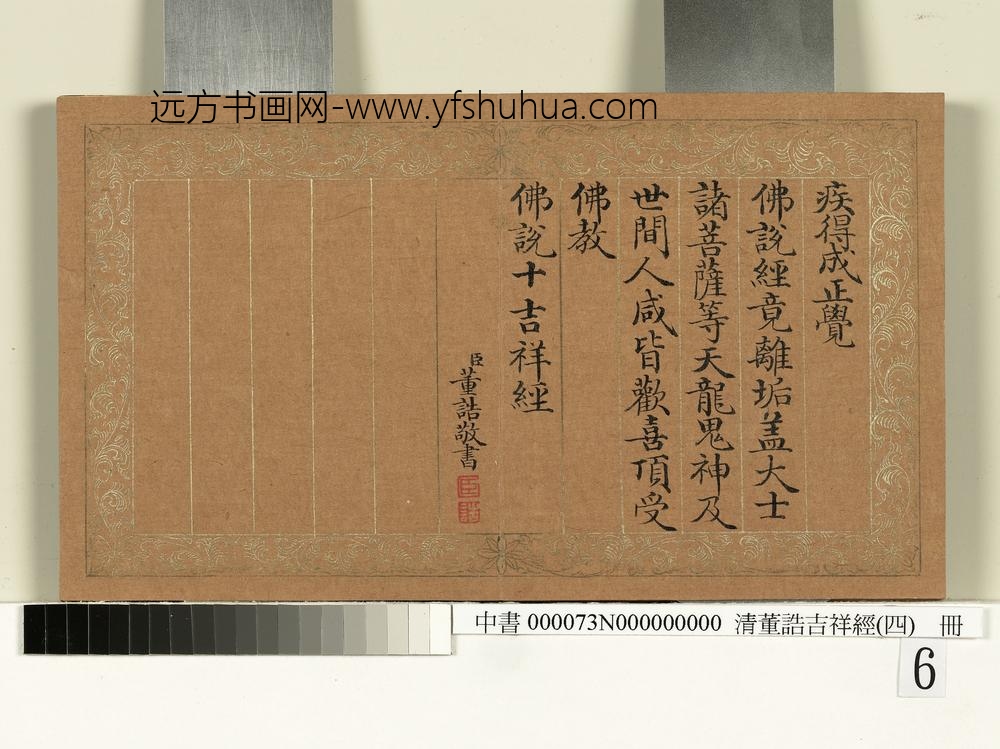 远方书画网-www.yfshuhua.com
疾得成正覺
佛說經竟離垢盖大士
諸菩薩等天龍鬼神及
世間人咸皆歡喜頂受
佛教
佛說十吉祥經
臣董誥敬書
臣
誥
中書 000073N000000000 清董誥吉祥經(四) 冊
6